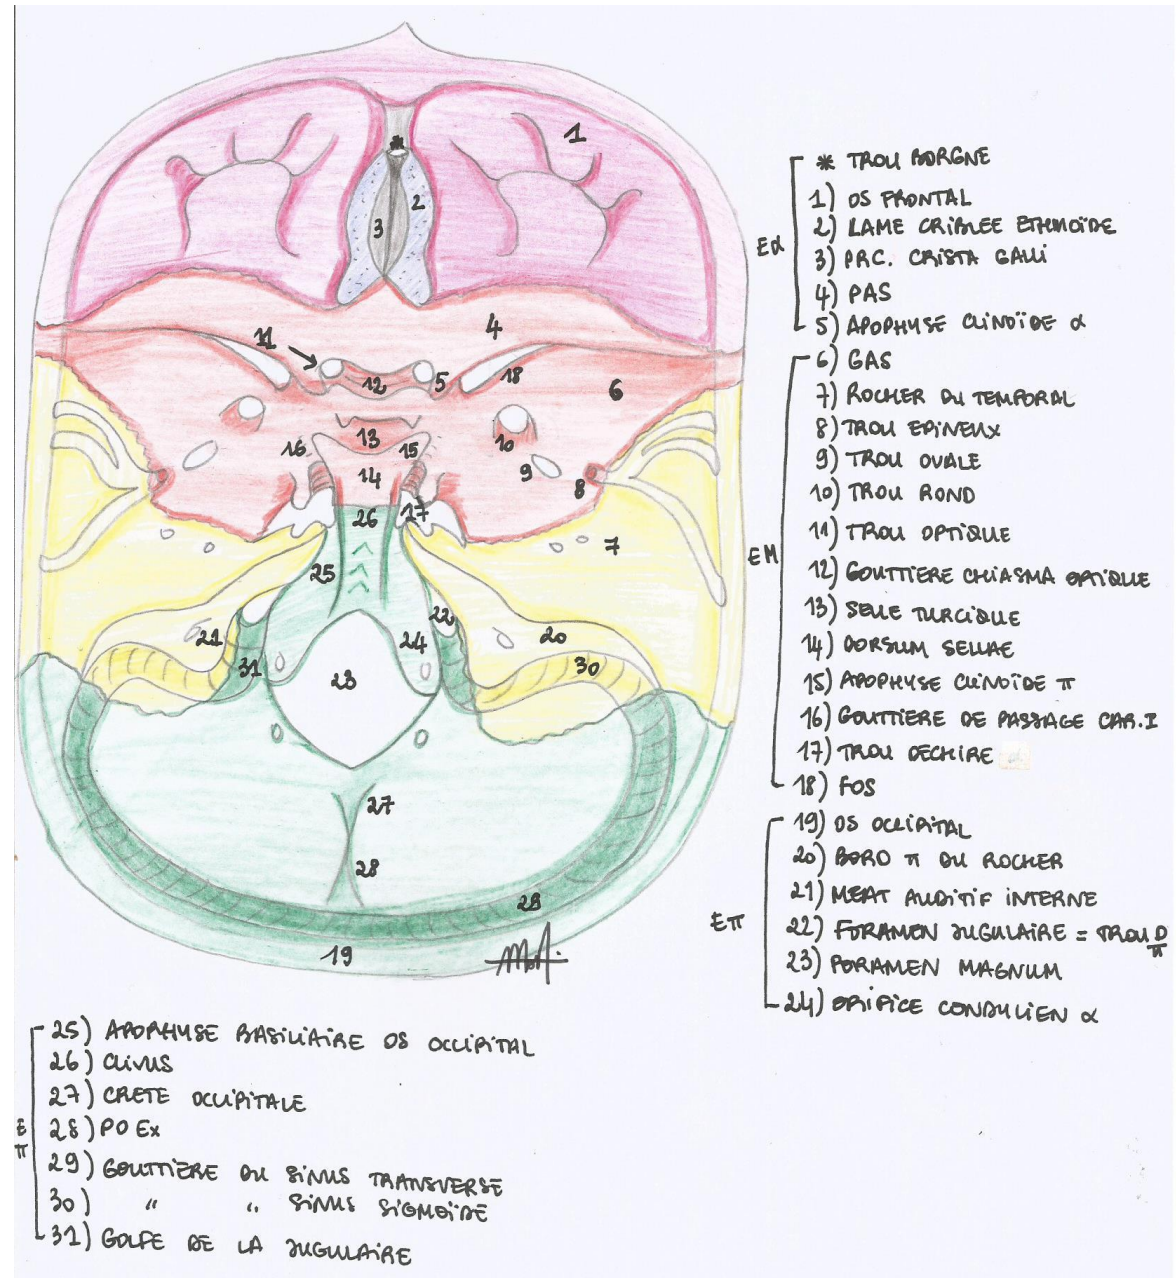 *
1
2
3
4
11
12
5
18
6
13
16
15
10
9
14
8
26
17
7
25
22
21
24
20
31
30
23
27
28
28
19
Eα
* TROU BORGNE
1) OS FRONTAL
2) LAME CRIBLEE ETHMOÏDE
3) PRC. CRISTA GALLI
4) PAS
5) APOPHYSE CLINOÏDE α
EM
6) GAS
7) ROCHER DU TEMPORAL
8) TROU EPINEUX
9) TROU OVALE
10) TROU ROND
11) TROU OPTIQUE
12) GOUTTIERE CHIASMA OPTIQUE
13) SELLE TURCIQUE
14) DORSUM SELLAE
15) APOPHYSE CLINOÏDE π
16) GOUTTIERE DE PASSAGE CAR.I
17) TROU DECHIRE
18) FOS
Eπ
19) OS OCCIPITAL
20) BORD π DU ROCHER
21) MEAT AUDITIF INTERNE
22) FORAMEN JUGULAIRE = TROU D π
23) FORAMEN MAGNUM
24) ORIFICE CONDYLIEN α
E π
25) APOPHYSE BASILIAIRE OS OCCIPITAL
26) CLIVUS
27) CRETE OCCIPITALE
28) PO Ex
29) GOUTTIERE DU SINUS TRANSVERSE
30) " " SINUS SIGMOÏDE
31) GOLFE DE LA JUGULAIRE